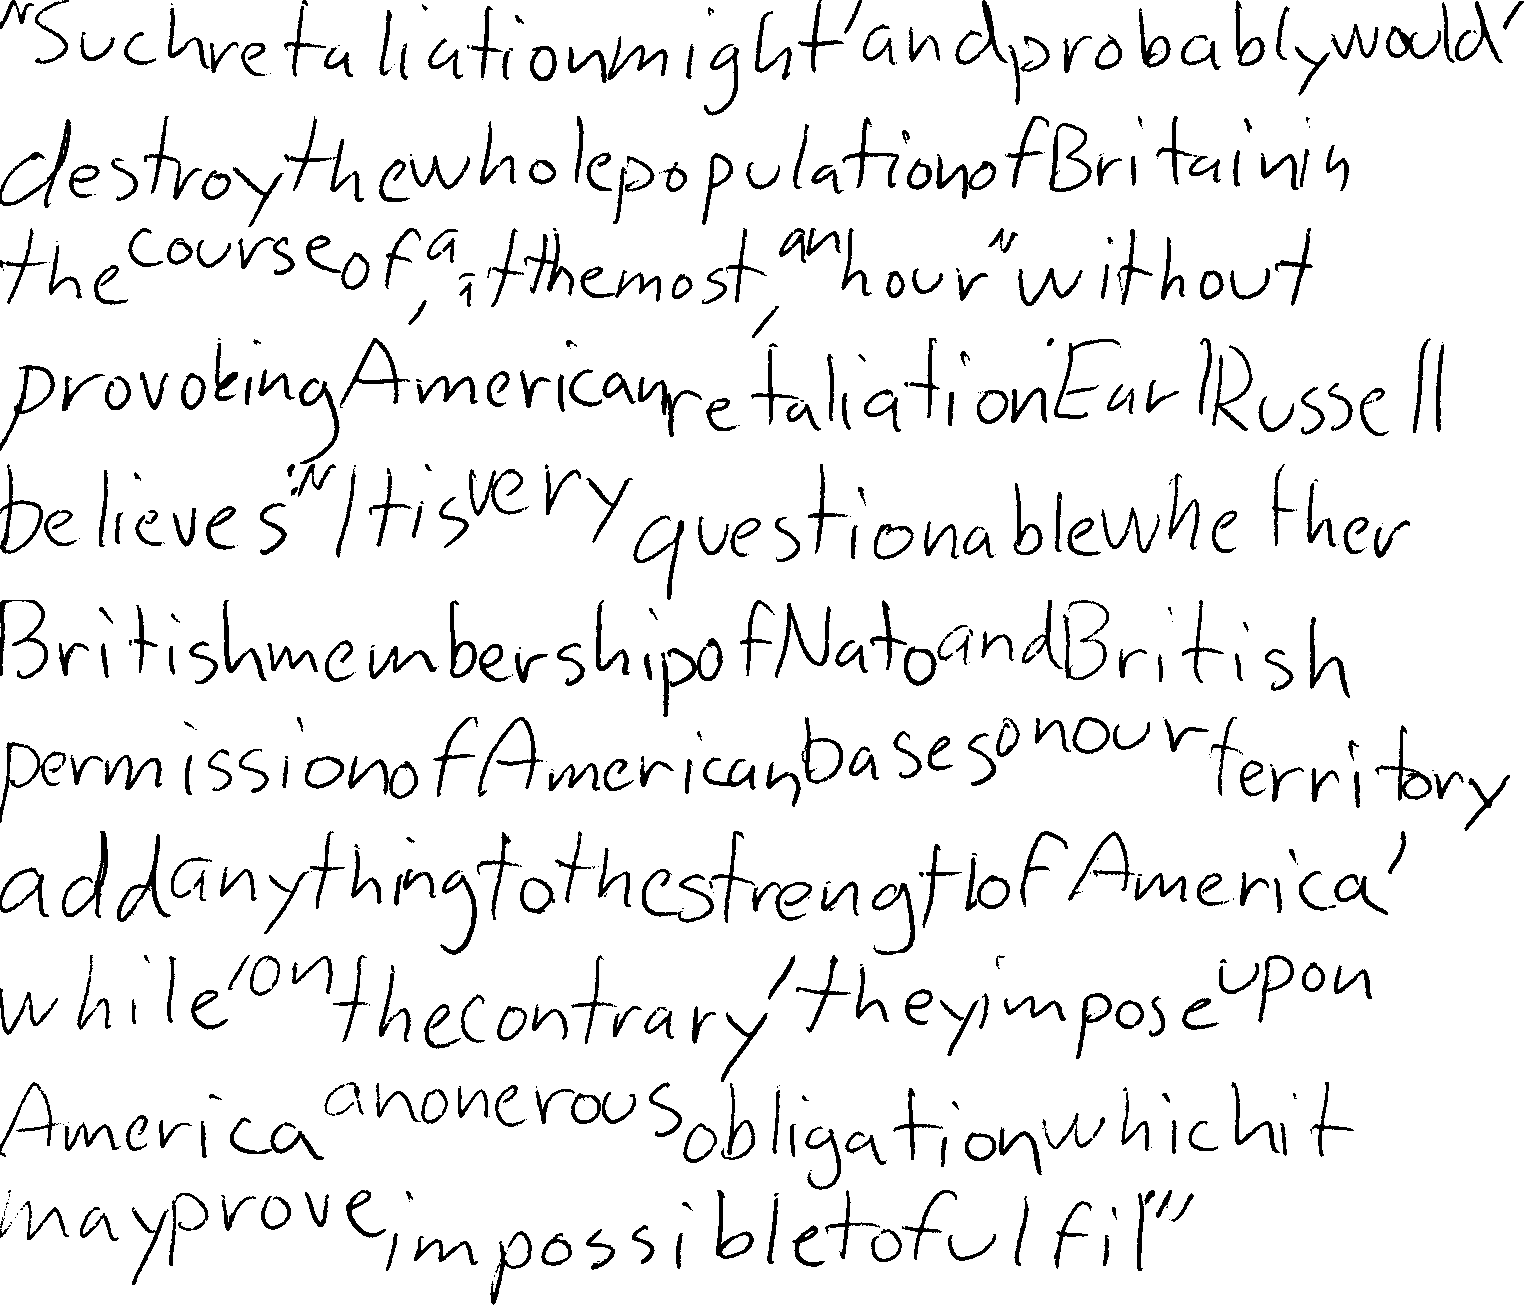 "Such retaliation might, and probably would,
destroy the whole population of Britain in
the course of, at the most, an hour" without
provoking American retaliation. Earl Russell
believes: "It is very questionable whether
British membership of Nato and British
permission of American bases on our territory
add anything to the strength of America,
while, on the contrary, they impose upon
America an onerous obligation which it
may prove impossible to fulfil."